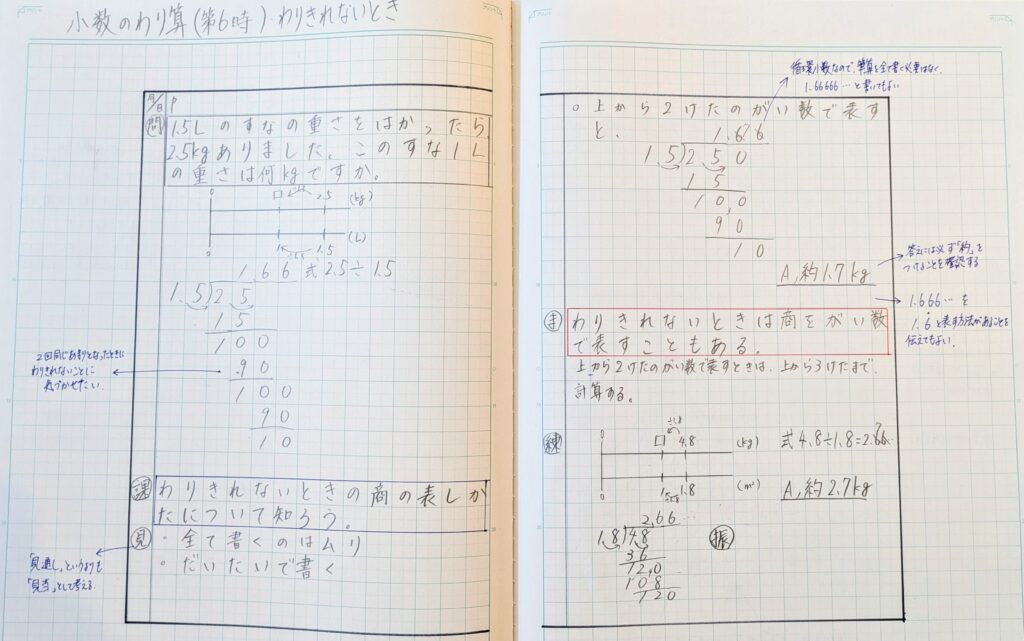 小数のわり算(第6時)・わりきれないとき
月/日 P
問 1.5Lのすなの重さをはかったら、
2.5kgありました。このすな1L
の重さは何kgですか。
0 □ 2.5 (kg)
0 1 1.5 (L)
1.66 式2.5÷1.5
1.5)2.5
15
100
90
100
90
10
2回同じあまりとなったときに
わりきれないことに
気づかせたい。
課 わりきれないときの商の表しか
たについて知ろう。
見 ・全て書くのはムリ
・だいたいで書く
「見通し」というよりも
「見当」として考える。
循環小数なので、筆算を全て書く必要はなく、
1.66666…と書いてもよい
○上から2けたのがい数で表す
と、
1.66
1.5)2.50
15
10.0
90
10
A,約1.7kg
答えには必ず「約」を
つけることを確認する
1.666…を
1.6̇と表す方法があることを
伝えてもよい。
ま わりきれないときは商をがい数
で表すこともある。
上から2けたのがい数で表すときは、上から3けたまで
計算する。
練 0 □ 4.8 (kg)
0 1 1.8 (m²)
式4.8÷1.8=2.66…
A,約2.7kg
2.66…
1.8)4.8
36
12.0
108
120
振